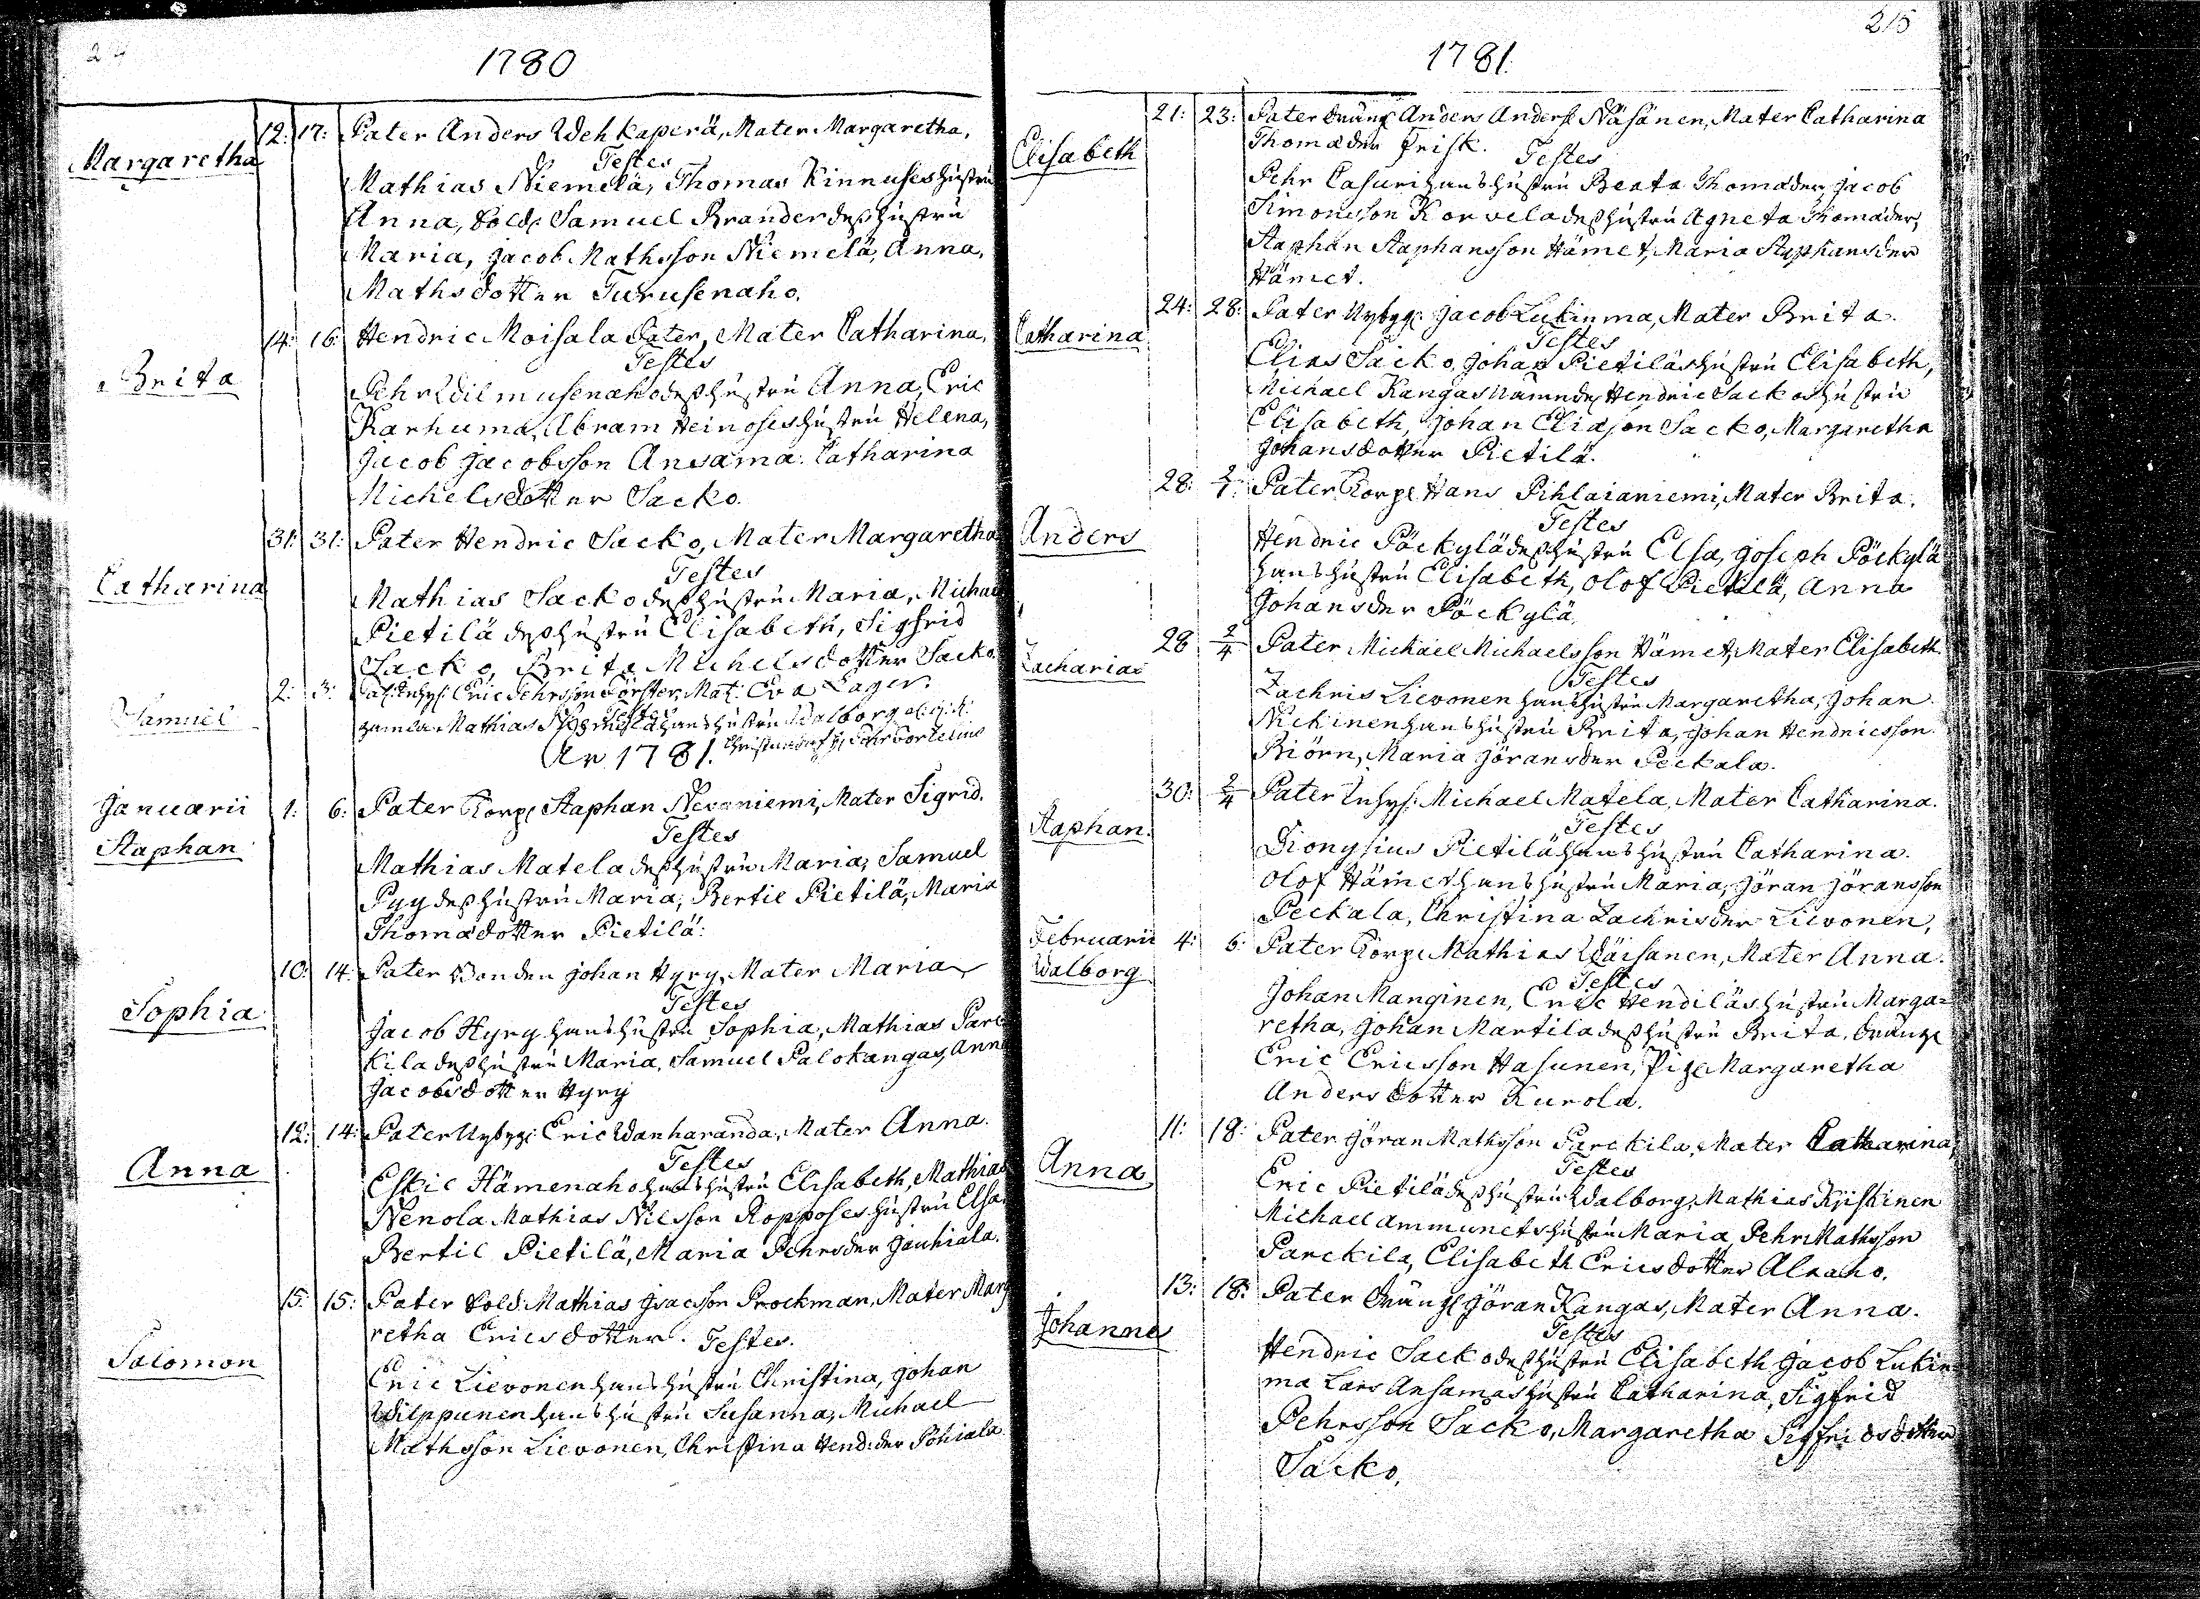 214
1780
12: 17: Pater Anders Wehkaperä, Mater Margaretha,
Margaretha
Testes
Mathias Niemelä, Thomas Kinnuses hustru
Anna, Sold: Samuel Brander dess hustru
Maria, Jacob Mathsson Niemelä, Anna,
Mathsdotter Turusenaho.
14: 16: Hendric Moisala Pater, Mater Catharina,
Brita
Testes
Pehr Wilmusenaho dess hustru Anna, Eric
Karhuma, Abram Heinoses hustru Helena,
Jacob Jacobsson Ansama. Catharina
Michelsdotter Sacko.
31: 31: Pater Hendric Sacko, Mater Margaretha
Catharina
Testes
Mathias Sacko dess hustru Maria, Michae
Pietilä dess hustru Elisabeth, Sigfrid
Sacko, Brita Michelsdotter Sacko.
2: 3: Inhys: Eric Pehrsson Förster, Mat: Eva Lager.
Samuel
Testes
Mathias hans hustru Walborg
Christendom Pehr Fortelius
An 1781.
Januarii 1: 6: Pater Torp: Staphan Nevaniemi, Mater Sigrid.
Staphan
Testes
Mathias Matela dess hustru Maria, Samuel
Pyy dess hustru Maria, Bertil Pietilä, Maria
Thomædotter Pietilä:
10: 14: Pater Bonden Johan Hyry, Mater Maria
Sophia
Testes
Jacob Hyry hans hustru Sophia, Mathias Parc
kila dess hustru Maria, Samuel Palokangas, Anna
Jacobsdotter Hyry
12: 14: Pater Nybyg: Eric Wanharanda, Mater Anna.
Anna
Testes
Eskil Hämenaho hans hustru Elisabeth, Mathias
Nenola Mathias Nilsson Ropposes hustru Elsa
Bertil Pietilä, Maria Pehrsder Jauhiala.
15: 15: Pater Sold: Mathias Isacsson Prockman, Mater Marg
retha Ericsdotter. Testes.
Salomon
Eric Lievonen hans hustru Christina, Johan
Wilppunen hans hustru Susanna, Michael
Mathsson Lievonen, Christina Hend:der Pöhiala
215
1781.
21: 23: Pater Dräng Anders Anders: Näsänen, Mater Catharina
Elisabeth
Thomæder Frisk. Testes
Pehr Casuri hans hustru Beata Thomæder, Jacob
Simonsson Korvela dess hustru Agneta Thomæder,
Staphan Staphansson Hämet, Maria Staphansder
Hämet.
24: 28: Pater Nybyg: Jacob Lukinma, Mater Brita.
Catharina
Testes
Elias Sacko, Johan Pietiläs hustru Elisabeth,
Michael Kangas Nämnde: Hendric Sackos hustru
Elisabeth, Johan Eliasson Sacko, Margaretha
Johansdotter Pietilä.
28: 2/1: Pater Torp: Hans Pihlaianiemi, Mater Brita.
Anders
Testes
Hendric Pöckylä dess hustru Elsa, Joseph Pöckylä
hans hustru Elisabeth, Olof Pietilä, Anna
Johansder Pöckylä.
28 2/4 Pater Michael Michaelsson Hämet, Mater Elisabeth.
Zacharias
Testes
Zachris Lievonen hans hustru Margaretha, Johan
Nickinen hans hustru Brita, Johan Hendricsson
Biörn, Maria Jöransder Peckala.
30: 2/4 Pater Inhys: Michael Matela, Mater Catharina.
Staphan.
Testes
Dionysius Pietilä hans hustru Catharina.
Olof Hämet hans hustru Maria, Jöran Jöransson
Peckala, Christina Zachrisder Lievonen,
Februarii 4: 6: Pater Torp: Mathias Wäisänen, Mater Anna.
Walborg
Testes
Johan Manginen, Eric Hendiläs hustru Marga=
retha, Johan Martila dess hustru Brita, Dräng:
Eric Ericsson Hasunen, Pig: Margaretha
Andersdotter Kurola.
11: 18: Pater Jöran Mathsson Parckila, Mater Catharina,
Anna
Testes
Eric Pietilä dess hustru Walborg, Mathias Kiiskinen
Michael Ammunets hustru Maria, Pehr Mathsson
Parckila, Elisabeth Ericsdotter Alaaho.
13: 18: Pater Dräng: Jöran Kangas, Mater Anna.
Johannes
Testes
Hendric Sacko dess hustru Elisabeth Jacob Lukin
ma Lars Ansamas hustru Catharina, Sigfrid
Pehrsson Sacko, Margaretha Sigfridsdotter
Sacko,